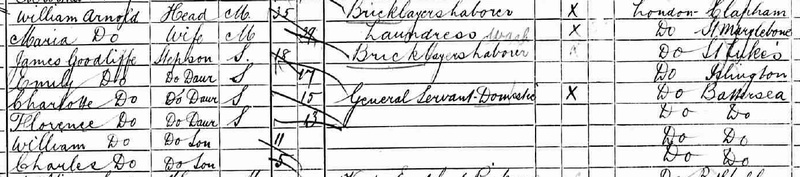 William Arnold Head M. 35 Bricklayers laborer X London Clapham
Maria Do Wife M Laundress Wash X Do St Marylebone
James Goodliffe Stepson S. 18 Bricklayers labour X Do St Luke's
Emily Do Do Daur S 17 Do Islington
Charlotte Do Do Daur S 15 General Servant-Domestic X Do Battersea
Florence Do Do Daur S 13 Do Do
William Do Do Son 11 Do Do
Charles Do Do Son 5 Do Do